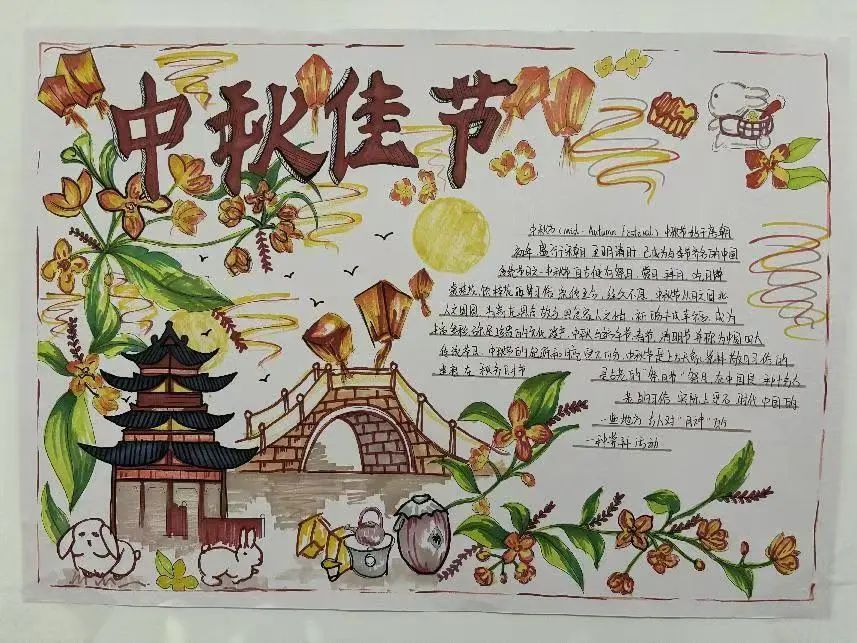 中秋佳节
中秋节 (mid-Autumn Festival) 中秋节始于唐朝
初年 盛行于宋朝 至明清时 已成为与春节齐名的中国
传统节日之一 中秋节自古便有祭月、赏月、拜月、吃月饼
赏桂花、饮桂花酒等习俗 流传至今 经久不息 中秋节以月之圆兆
人之团圆 为寄托思念故乡 思念亲人之情 祈盼丰收幸福 成为
丰富多彩 弥足珍贵的文化遗产 中秋与端午节 春节 清明节并称为中国四大
传统节日 中秋节的
是古老的"祭月节" 祭月 在中国是
古老的习俗 实际上是古时代中国的
一些地方 古人对"月神"的
一种崇拜活动